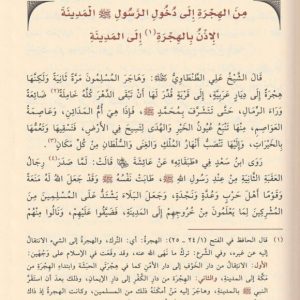 مِنَ الهِجْرَةِ إِلَى دُخُولِ الرَّسُولِ ﷺ الْمَدِينَةَ
الإِذْنُ بِالهِجْرَةِ(١) إِلَى المَدِينَةِ
قَالَ الشَّيْخُ عَلِي الطَّنْطَاوِيُّ: وَهَاجَرَ المُسْلِمُونَ مَرَّةً ثَانِيَةً وَلَكِنَّهَا
هِجْرَةٌ إِلَى دِيَارٍ عَرَبِيَّةٍ، إِلَى قَرْيَةٍ قُدِّرَ لَهَا أَنْ تَبْقَى الدَّهْرَ كُلَّهُ خَامِلَةً(٢) ضَائِعَةً
وَرَاءَ الرِّمَالِ، حَتَّى تَتَشَرَّفَ بِمُحَمَّدٍ ﷺ، فَإِذَا هِيَ أُمُّ المَدَائِنِ، وَعَاصِمَةُ
العَوَاصِمِ، مِنْهَا تَنْبُعُ عُيُونُ الخَيْرِ وَالهُدَى لِتَسِيحَ فِي الأَرْضِ، فَتَسْقِيَهَا وَتَعُمَّهَا
بِالخَيْرَاتِ، وَإِلَيْهَا تَنْصَبُّ أَنْهَارُ المُلْكِ وَالغِنَى وَالسُّلْطَانِ مِنْ كُلِّ مَكَانٍ(٣).
وَرَوَى ابْنُ سَعْدٍ فِي «طَبَقَاتِهِ» عَنْ عَائِشَةَ قَالَتْ: لَمَّا صَدَرَ(٤) رِجَالُ
العَقَبَةِ الثَّانِيَةِ مِنْ عِنْدِ رَسُولِ اللهِ ﷺ، طَابَتْ نَفْسُهُ ﷺ وَقَدْ جَعَلَ اللهُ لَهُ مَنَعَةً
وَقَوْمًا أَهْلَ حَرْبٍ وَعُدَّةٍ وَنَجْدَةٍ، وَجَعَلَ البَلَاءُ يَشْتَدُّ عَلَى المُسْلِمِينَ مِنَ
المُشْرِكِينَ لِمَا يَعْلَمُونَ مِنْ خُرُوجِهِمْ إِلَى المَدِينَةِ، فَضَيَّقُوا عَلَيْهِمْ، وَنَالُوا مِنْهُمْ
(١) قال الحافظ في الفتح (١/ ٢٤، ٢٥): الهجرةُ: أي: الترك، والهجرةُ إلى الشيء الانتقالُ
إليه عن غيره، وفي الشرع: تركُ ما نهى الله عنه، وقد وقعت في الإسلام على وَجْهين:
الأول: الانتقالُ من دار الخوف إلى دار الأمنِ كما في هِجْرَتي الحبشَة وابتداءِ الهِجْرَة مِنْ
مكَّة إلى المدينة، والثاني: الهجرةُ من دَارِ الكُفْرِ إلى دَارِ الإيمان، وذلك بعدَ أن
بالمدينة وهاجر إليه مَنْ أمكنَهُ ذلك من المسلمين، وكانت الهجرةُ إذ ذاك